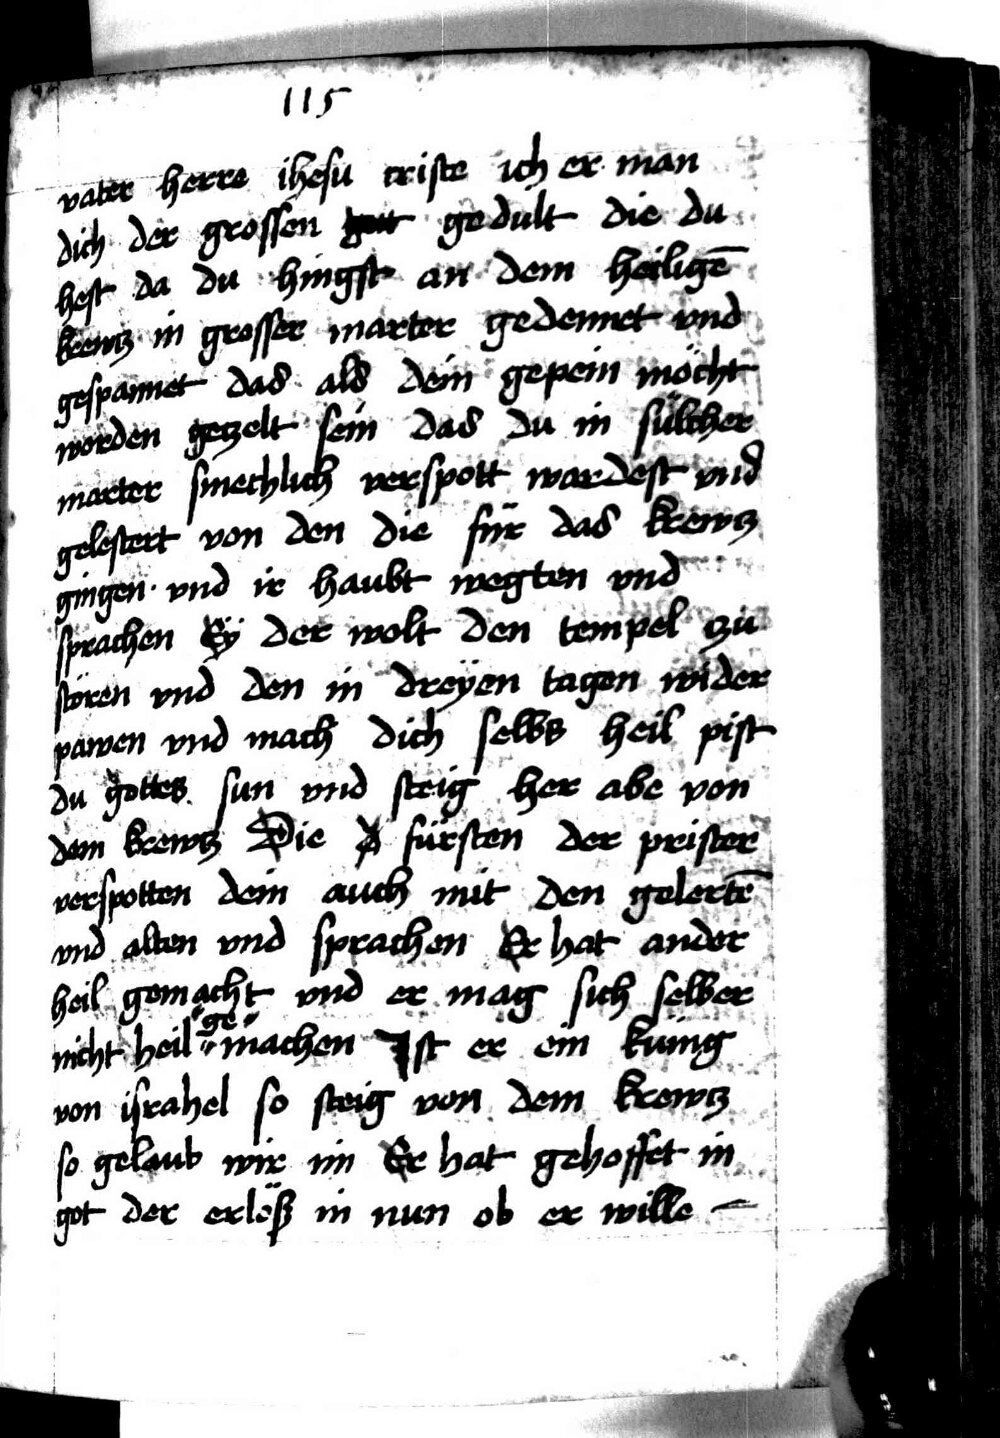 115
vater herre ihesu criste ich er man
dich der grossen gedult die du
hest da du hingst an dem heiligē
krewtz in grosser marter gedennet vnd
gespannet das als dein gepein möcht
worden getzelt sein das du in sülcher
marter smechlich verspott wardest vnd
gelestert von den die für das krewtz
gingen · vnd ir haubt wegten vnd
sprachen Eÿ der wolt den tempel zu
stören vnd den in dreÿen tagen wider
pawen vnd mach dich selbs heil pist
du gottes sun vnd steig her abe von
dem krewtz Die fürsten der prister
verspotten dein auch mit den gelertē
vnd alten vnd sprachen Er hat ander
heil gemacht vnd er mag sich selber
nicht heil "ge" machen Ist er ein küing
von israhel so steig von dem krewtz
so gelaub wir im Er hat gehoffet in
got der erlöß in nun ob er wille —